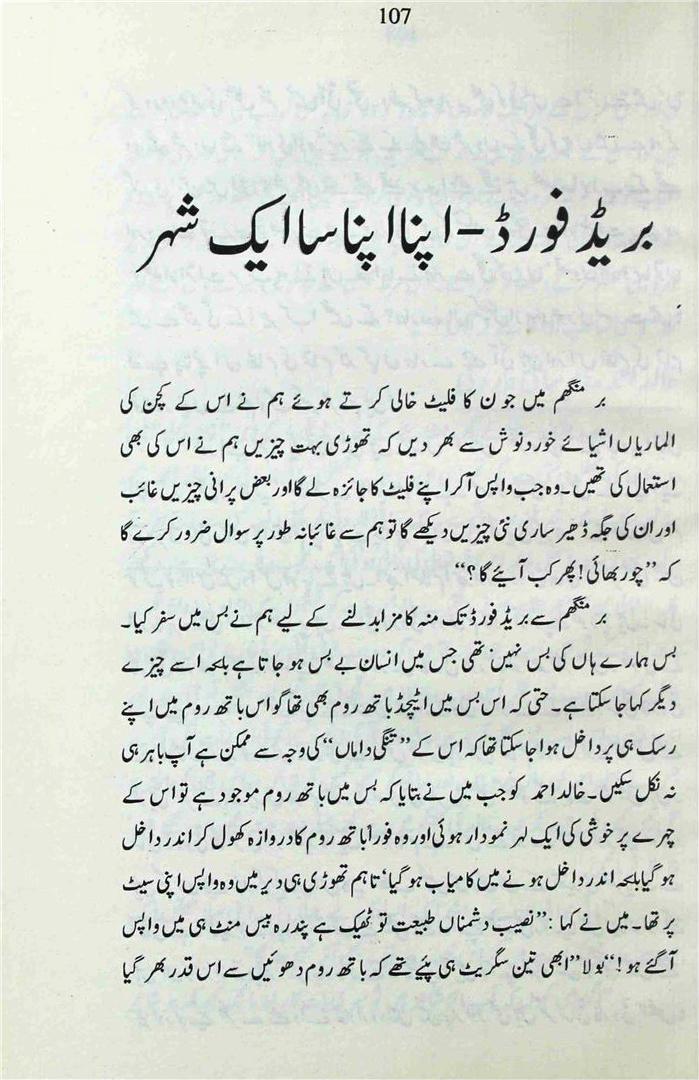 107
بریڈفورڈ - اپنا اپنا سا ایک شہر
برمنگھم میں جون کا فلیٹ خالی کرتے ہوئے ہم نے اس کے کچن کی
الماریاں اشیائے خوردنوش سے بھر دیں کہ تھوڑی بہت چیزیں ہم نے اس کی بھی
استعمال کی تھیں۔ وہ جب واپس آکر اپنے فلیٹ کا جائزہ لے گا اور بعض پرانی چیزیں غائب
اور ان کی جگہ ڈھیر ساری نئی چیزیں دیکھے گا تو ہم سے غائبانہ طور پر سوال ضرور کرے گا
کہ ”چور بھائی! پھر کب آیئے گا؟“
برمنگھم سے بریڈفورڈ تک منہ کا مزا بدلنے کے لیے ہم نے بس میں سفر کیا۔
بس ہمارے ہاں کی بس نہیں تھی جس میں انسان بے بس ہو جاتا ہے بلکہ اسے چیزے
دیگر کہا جا سکتا ہے۔ حتیٰ کہ اس بس میں اٹیچڈ باتھ روم بھی تھا گو اس باتھ روم میں اپنے
رسک ہی پر داخل ہوا جا سکتا تھا کہ اس کے ”تنگی داماں“ کی وجہ سے ممکن ہے آپ باہر ہی
نہ نکل سکیں۔ خالد احمد کو جب میں نے بتایا کہ بس میں باتھ روم موجود ہے تو اس کے
چہرے پر خوشی کی ایک لہر نمودار ہوئی اور وہ فوراً باتھ روم کا دروازہ کھول کر اندر داخل
ہو گیا بلکہ اندر داخل ہونے میں کامیاب ہو گیا‘ تاہم تھوڑی ہی دیر میں وہ واپس اپنی سیٹ
پر تھا۔ میں نے کہا: ”نصیب دشمناں طبیعت تو ٹھیک ہے پندرہ بیس منٹ ہی میں واپس
آگئے ہو!“ بولا ”ابھی تین سگریٹ ہی پیئے تھے کہ باتھ روم دھوئیں سے اس قدر بھر گیا